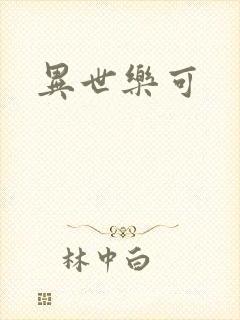 異世樂可
林中白